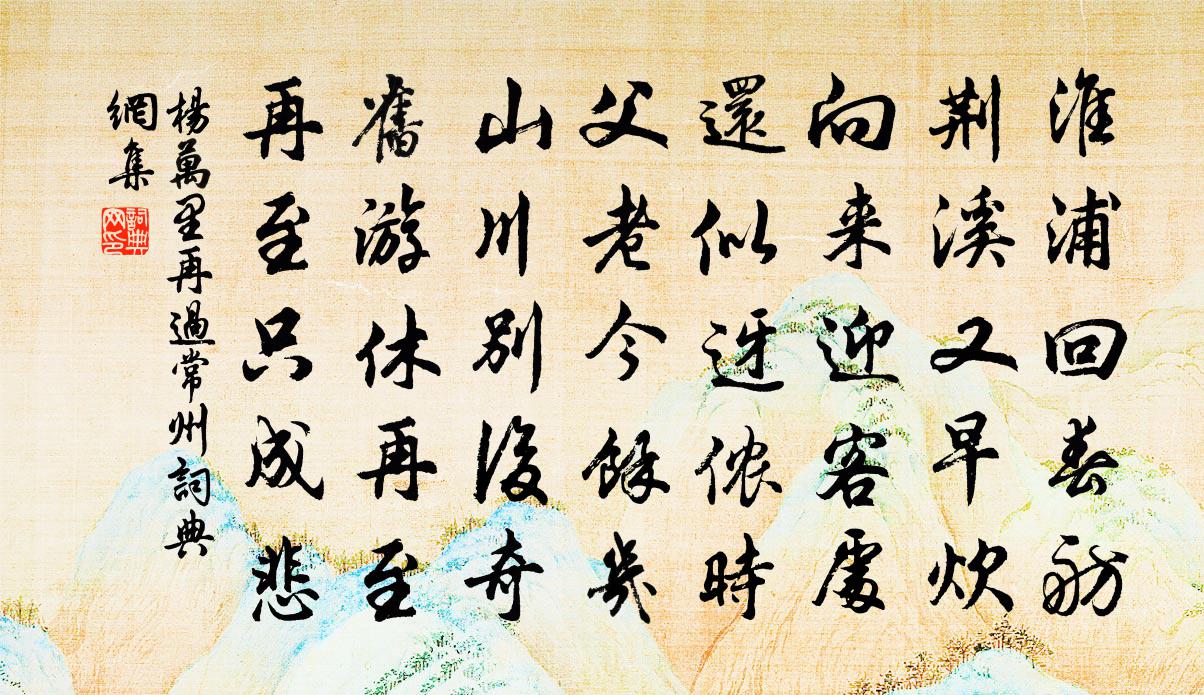 淮浦回春舫
荆溪又早炊
向来迎客處
還似迓侬時
父老今餘幾
山川別後奇
舊游休再至
再至只成悲
楊萬里再過常州詞典
網集
詞典
网印